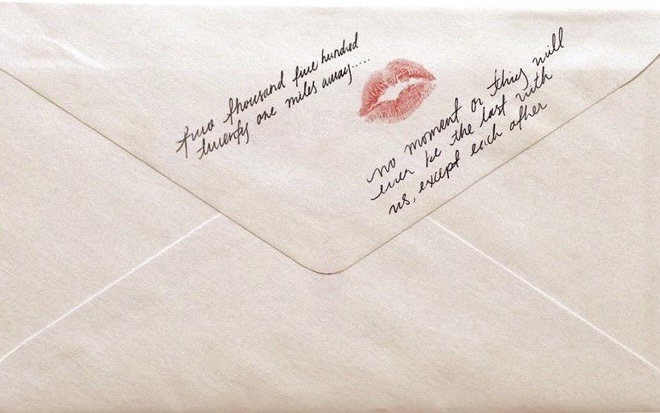 two thousand five hundred
twenty one miles away.....
no moment or thing will
ever be the last with
us, except each other